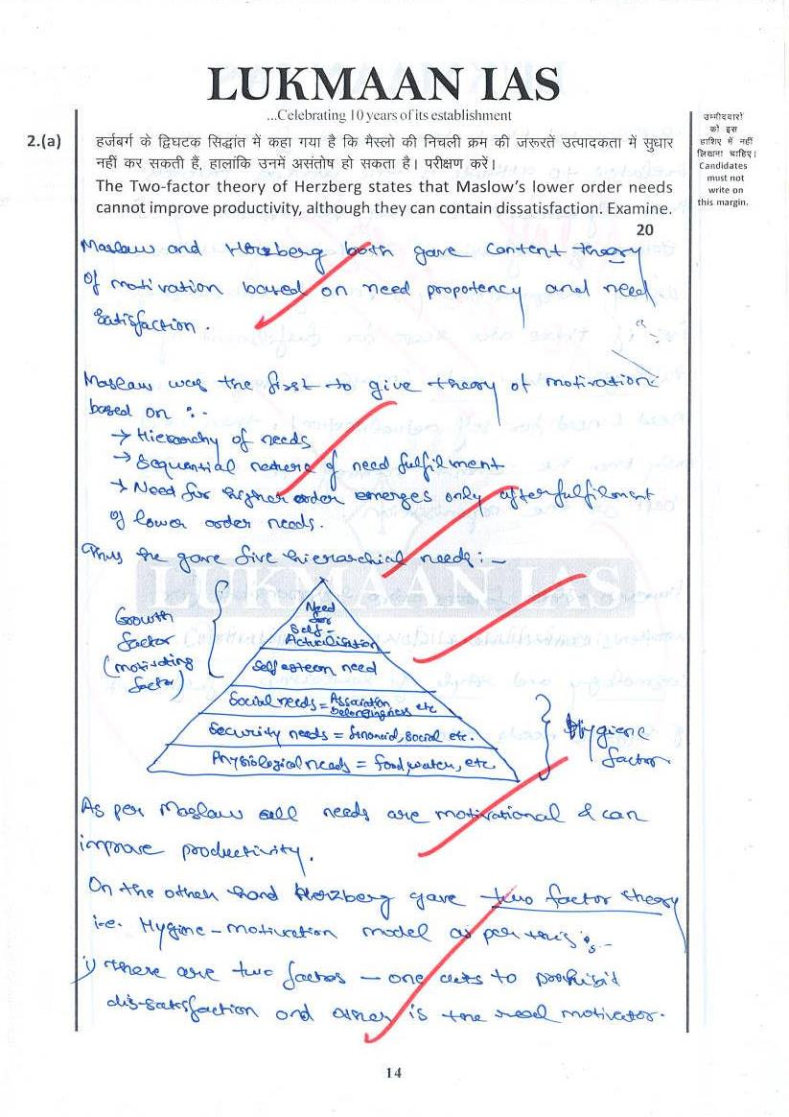 LUKMAAN IAS
...Celebrating 10 years of its establishment
उम्मीदवारों
को इस
हाशिए में नहीं
लिखना चाहिए।
Candidates
must not
write on
this margin.
2.(a) हर्जबर्ग के द्विघटक सिद्धांत में कहा गया है कि मैस्लो की निचली क्रम की जरूरतें उत्पादकता में सुधार
नहीं कर सकती हैं, हालांकि उनमें असंतोष हो सकता है। परीक्षण करें।
The Two-factor theory of Herzberg states that Maslow's lower order needs
cannot improve productivity, although they can contain dissatisfaction. Examine.
20
Maslaw and Herzberg both gave content theory
of motivation based on need propotency and need
Satisfaction.
Maslaw was the first to give theory of motivation
based on :-
→ Hierarchy of needs
→ Sequential nature of need fulfilment
→ Need for higher order emerges only after fulfilment
of lower order needs.
Thus he gave five hierarchial needs :-
Growth
factor
(motivating
factor)
Need
for
Self-
Actualisation
Self esteem need
Social needs = Association
belongingness etc
Security needs = financial, social etc.
Physiological needs = food, water, etc.
Hygiene
factor
LUKMAAN IAS
As per Maslaw all needs are motivational & can
improve productivity.
On the other hand Herzberg gave two factor theory
i.e. Hygine-motivation model as per this :-
i) there are two factors — one acts to prohibit
dis-satisfaction and other is the real motivator.
14